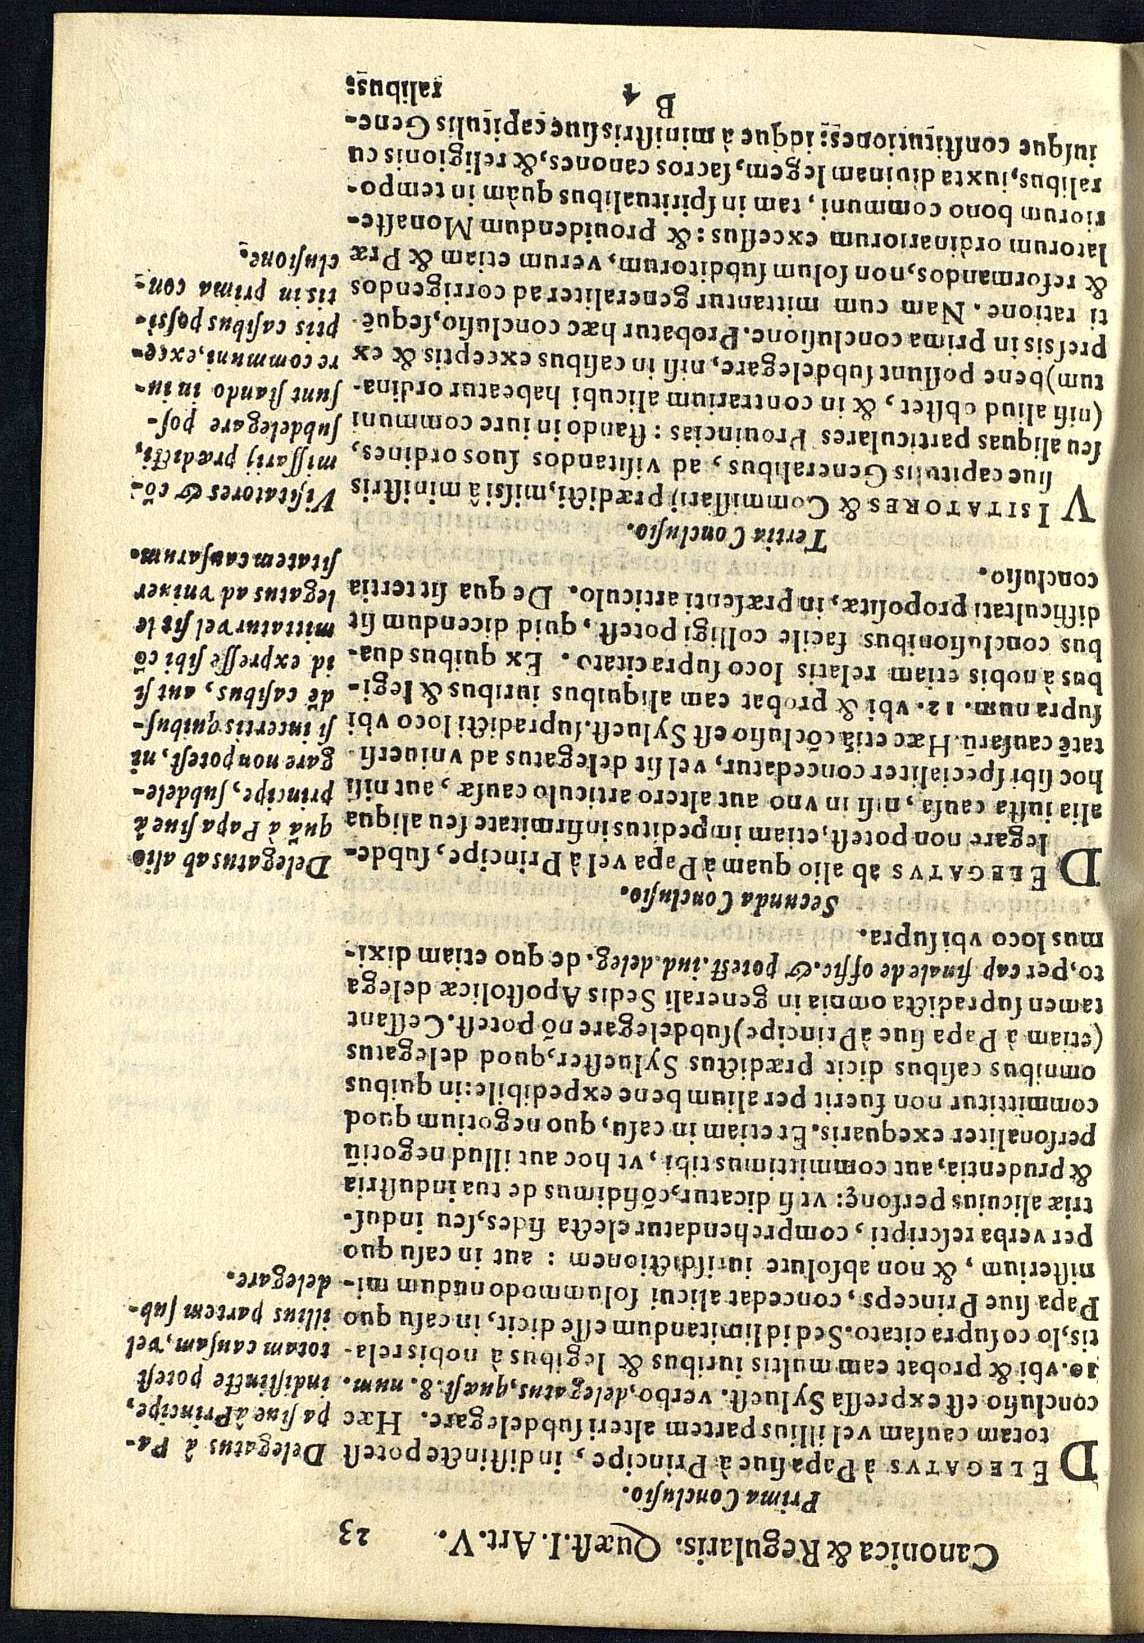 Canonica & Regularis. Quæſt. I. Art. V. 23
Prima Concluſio.
DELEGATVS à Papa ſiue à Principe, indiſtinctè poteſt
totam cauſam vel illius partem alteri ſubdelegare. Hæc
concluſio eſt expreſſa Sylueſt. verbo, delegatus, quæſt. 8. num.
10. vbi & probat eam multis iuribus & legibus à nobis rela-
tis, lo co ſupra citato. Sed id limitandum eſſe dicit, in caſu quo
Papa ſiue Princeps, concedat alicui ſolummodo nudum mi-
niſterium, & non abſolutè iuriſdictionem: aut in caſu quo
per verba reſcripti, comprehendatur electa fides, ſeu induſ-
triæ alicuius perſonę: vt ſi dicatur, cõfidimus de tua induſtria
& prudentia, aut committimus tibi, vt hoc aut illud negotiũ
perſonaliter exequaris. Et etiam in caſu, quo negotium quod
committitur non fuerit per alium bene expedibile: in quibus
omnibus caſibus dicit prædictus Sylueſter, quod delegatus
(etiam à Papa ſiue à Principe) ſubdelegare nõ poteſt. Ceſſant
tamen ſupradicta omnia in generali Sedis Apoſtolicæ delega
to, per cap. finale de offic. & poteſt. iud. deleg. de quo etiam dixi-
mus loco vbi ſupra.
Secunda Concluſio.
DELEGATVS ab alio quam à Papa vel à Principe, ſubde-
legare non poteſt, etiam impeditus infirmitate ſeu aliqua
alia iuſta cauſa, niſi in vno aut altero articulo cauſæ, aut niſi
hoc ſibi ſpecialiter concedatur, vel ſit delegatus ad vniuerſi-
tatẽ cauſarũ. Hæc etiã cõcluſio eſt Sylueſt. ſupradicti loco vbi
ſupra num. 12. vbi & probat eam aliquibus iuribus & legi-
bus à nobis etiam relatis loco ſupra citato. Ex quibus dua-
bus concluſionibus facilè colligi poteſt, quid dicendum ſit
difficultati propoſitæ, in præſenti articulo. De qua ſit tertia
concluſio.
Tertia Concluſio.
VISITATORES & Commiſſarij prædicti, miſſi à miniſtris
ſiue capitulis Generalibus, ad viſitandos ſuos ordines,
ſeu aliquas particulares Prouincias: ſtando in iure communi
(niſi aliud obſtet, & in contrarium alicubi habeatur ordina-
tum) bene poſſunt ſubdelegare, niſi in caſibus exceptis & ex
preſsis in prima concluſione. Probatur hæc concluſio, ſequẽ
ti ratione. Nam cum mittantur generaliter ad corrigendos
& reformandos, non ſolum ſubditorum, verum etiam & Præ
latorum ordinariorum exceſſus: & prouidendum Monaſte-
riorum bono communi, tam in ſpiritualibus quàm in tempo-
ralibus, iuxta diuinam legem, ſacros canones, & religionis cu
iuſque conſtitutiones: idque à miniſtris ſiue capitulis Gene-
B 4 ralibus;
Delegatus à Pa-
pa ſiue à Principe,
indiſtinctè poteſt
totam cauſam, vel
illius partem ſub-
delegare.
Delegatus ab alio
quã à Papa ſiue à
principe, ſubdele-
gare non poteſt, ni
ſi in certis quibuſ-
dẽ caſibus, aut ſi
id expreſſe ſibi cõ
mittatur vel ſit de
legatus ad vniuer
ſitatem cauſarum.
Viſitatores & cõ-
miſſarij prædicti,
ſubdelegare poſ-
ſunt ſtando in iu-
re communi, exce-
ptis caſibus poſsi-
tis in prima con-
cluſione.